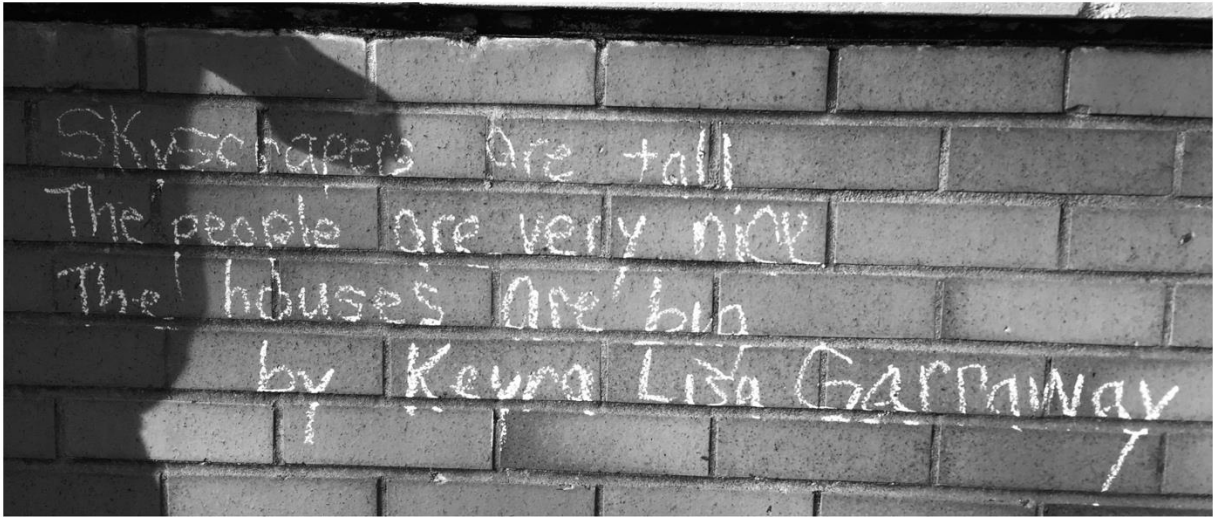 Skyscrapers are tall
The people are very nice
The houses are big
by Keyna Lisa Garraway